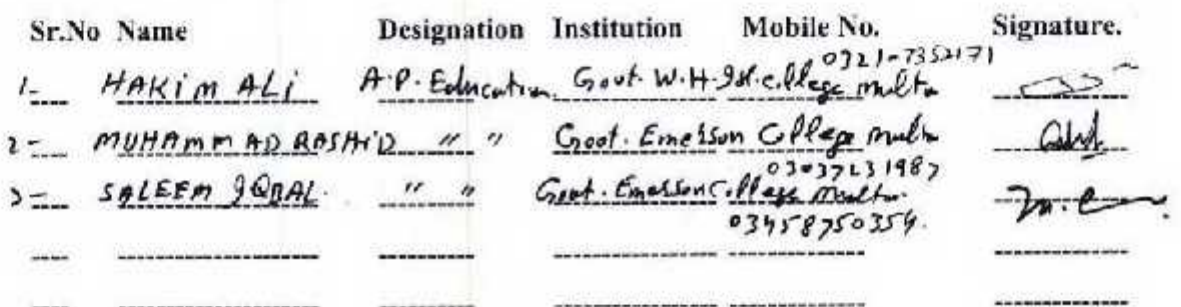 Sr.No Name Designation Institution Mobile No. Signature.
0321-7352171
1- HAKIM ALI A.P. Education Govt. W.H. Isl. College Multan
2- MUHAMMAD RASHID " " Govt. Emerson College Multan
03037231987
3- SALEEM IQBAL. " " Govt. Emerson College Multan.
03458750354.